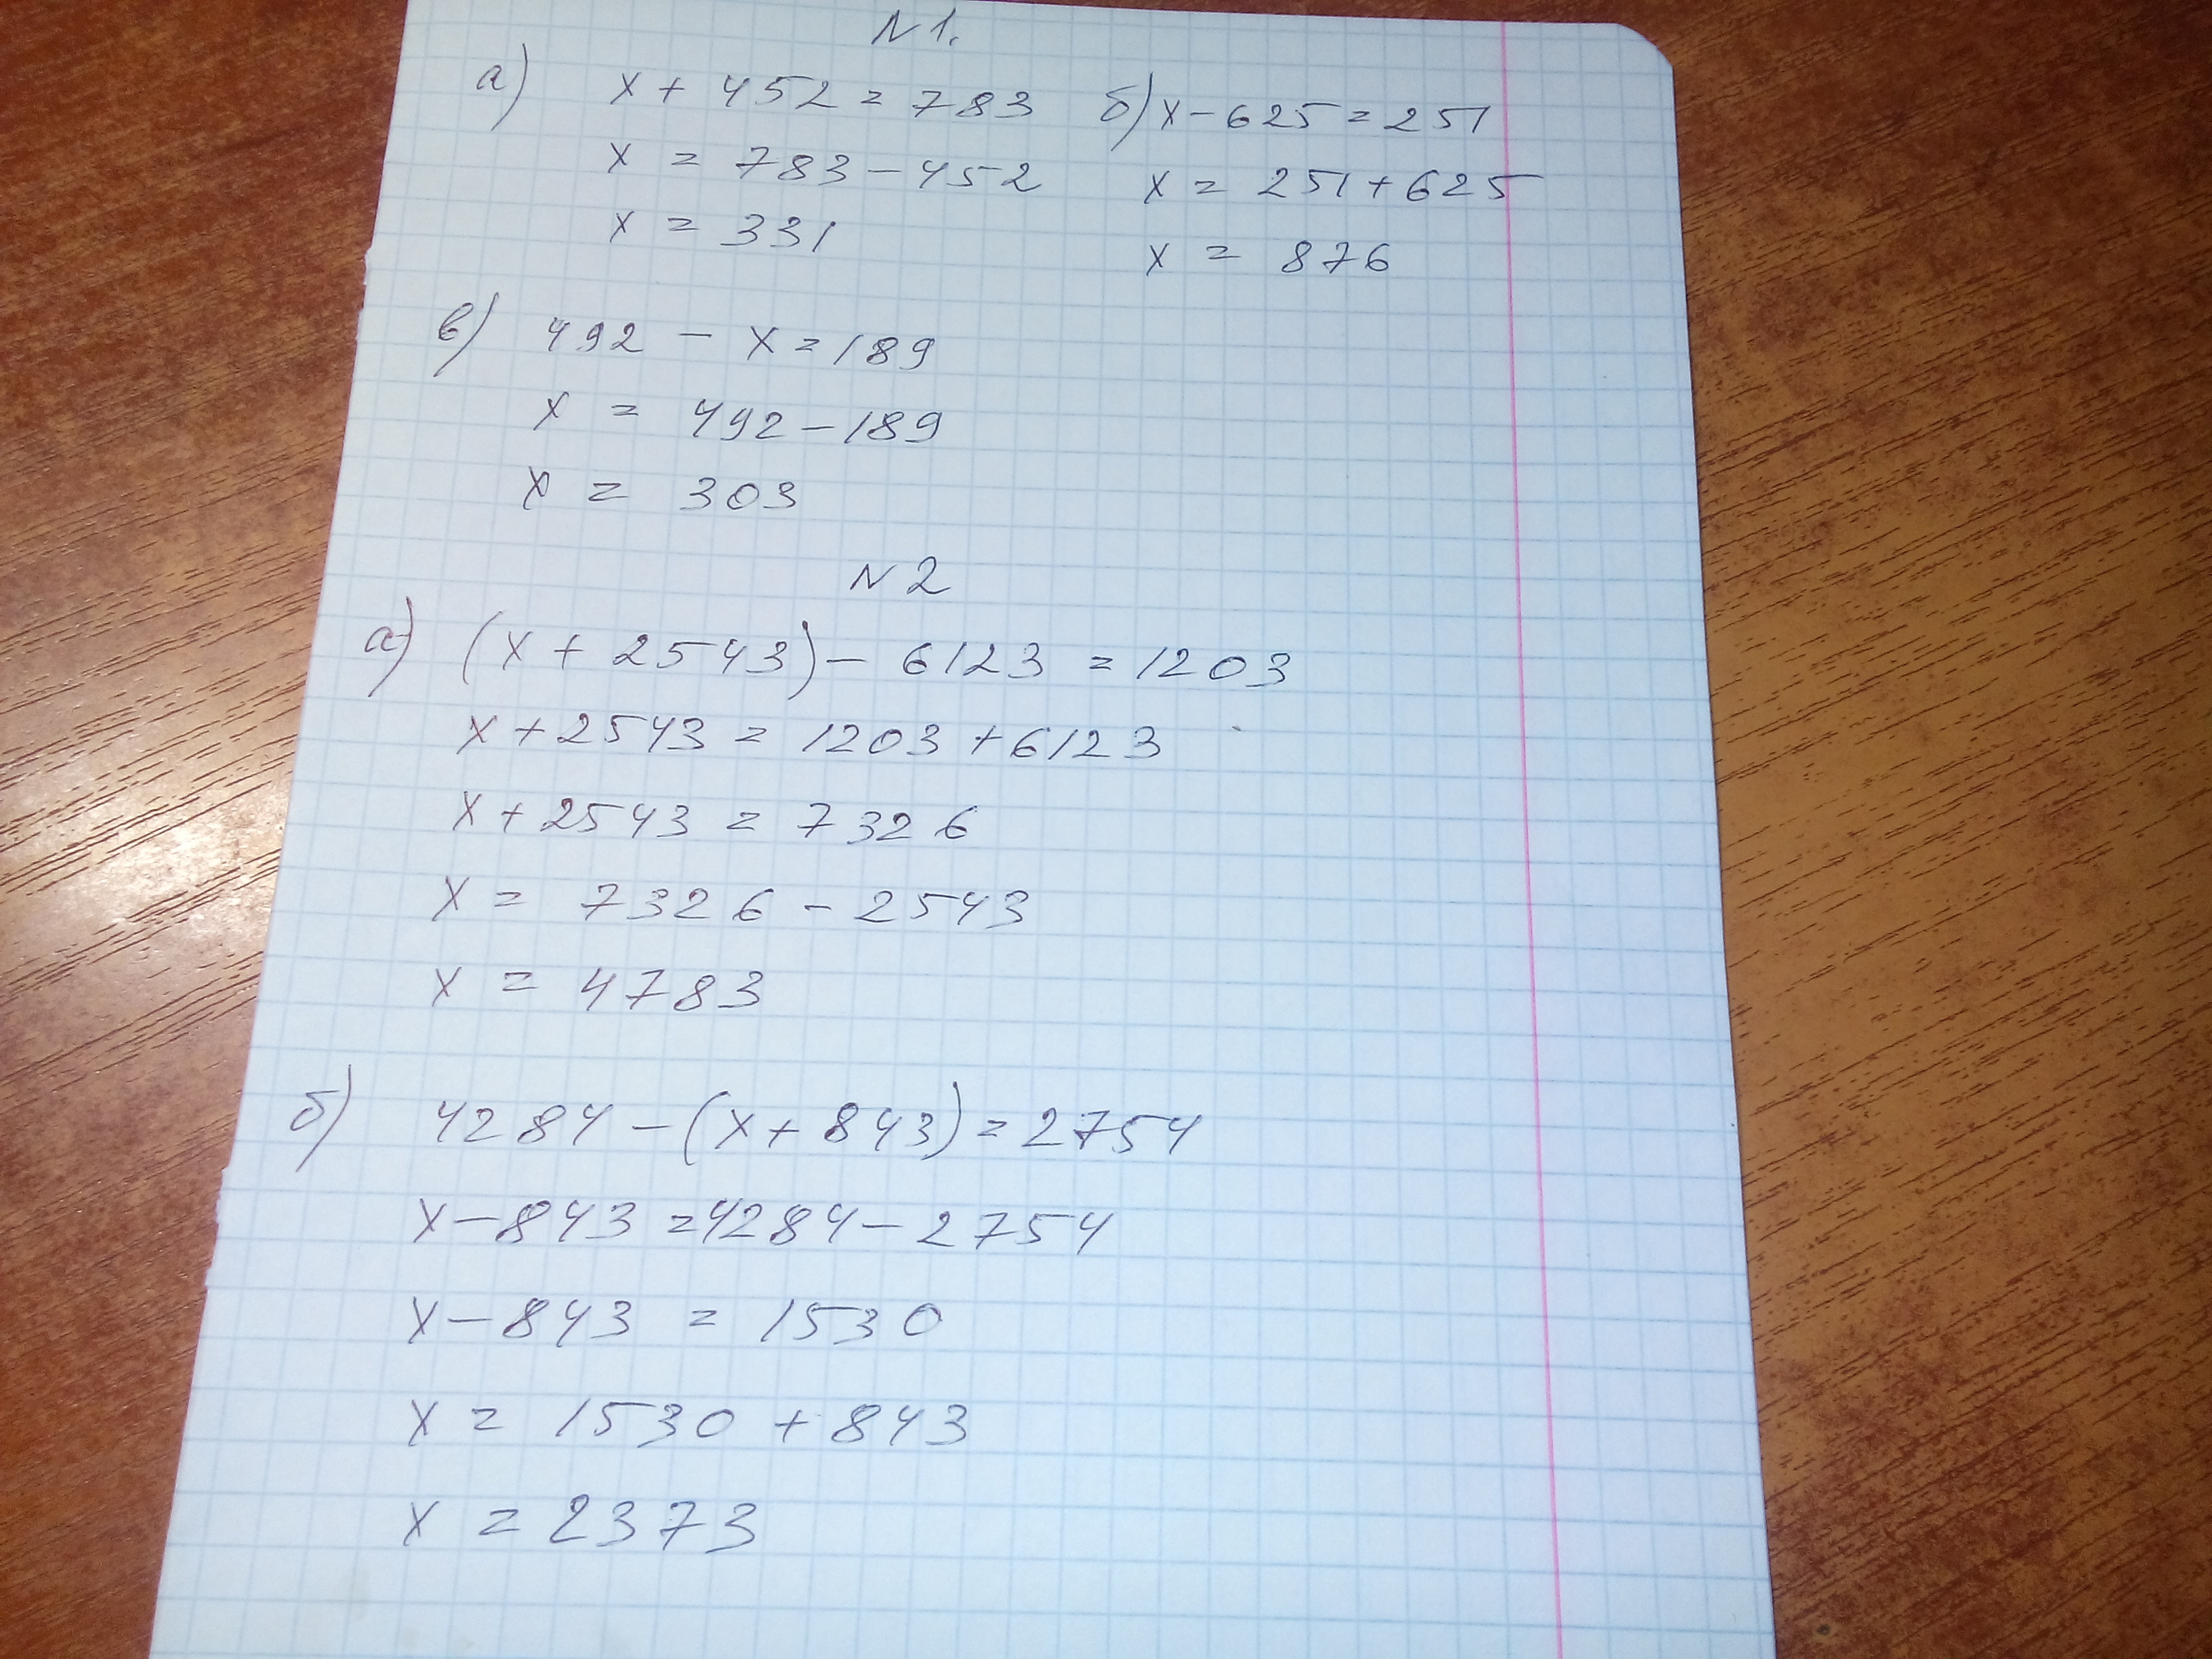 N1.
а) x + 452 = 783
x = 783 - 452
x = 331
б) x - 625 = 251
x = 251 + 625
x = 876
в) 492 - x = 189
x = 492 - 189
x = 303
N2
а) (x + 2543) - 6123 = 1203
x + 2543 = 1203 + 6123
x + 2543 = 7326
x = 7326 - 2543
x = 4783
б) 4284 - (x + 843) = 2754
x - 843 = 4284 - 2754
x - 843 = 1530
x = 1530 + 843
x = 2373